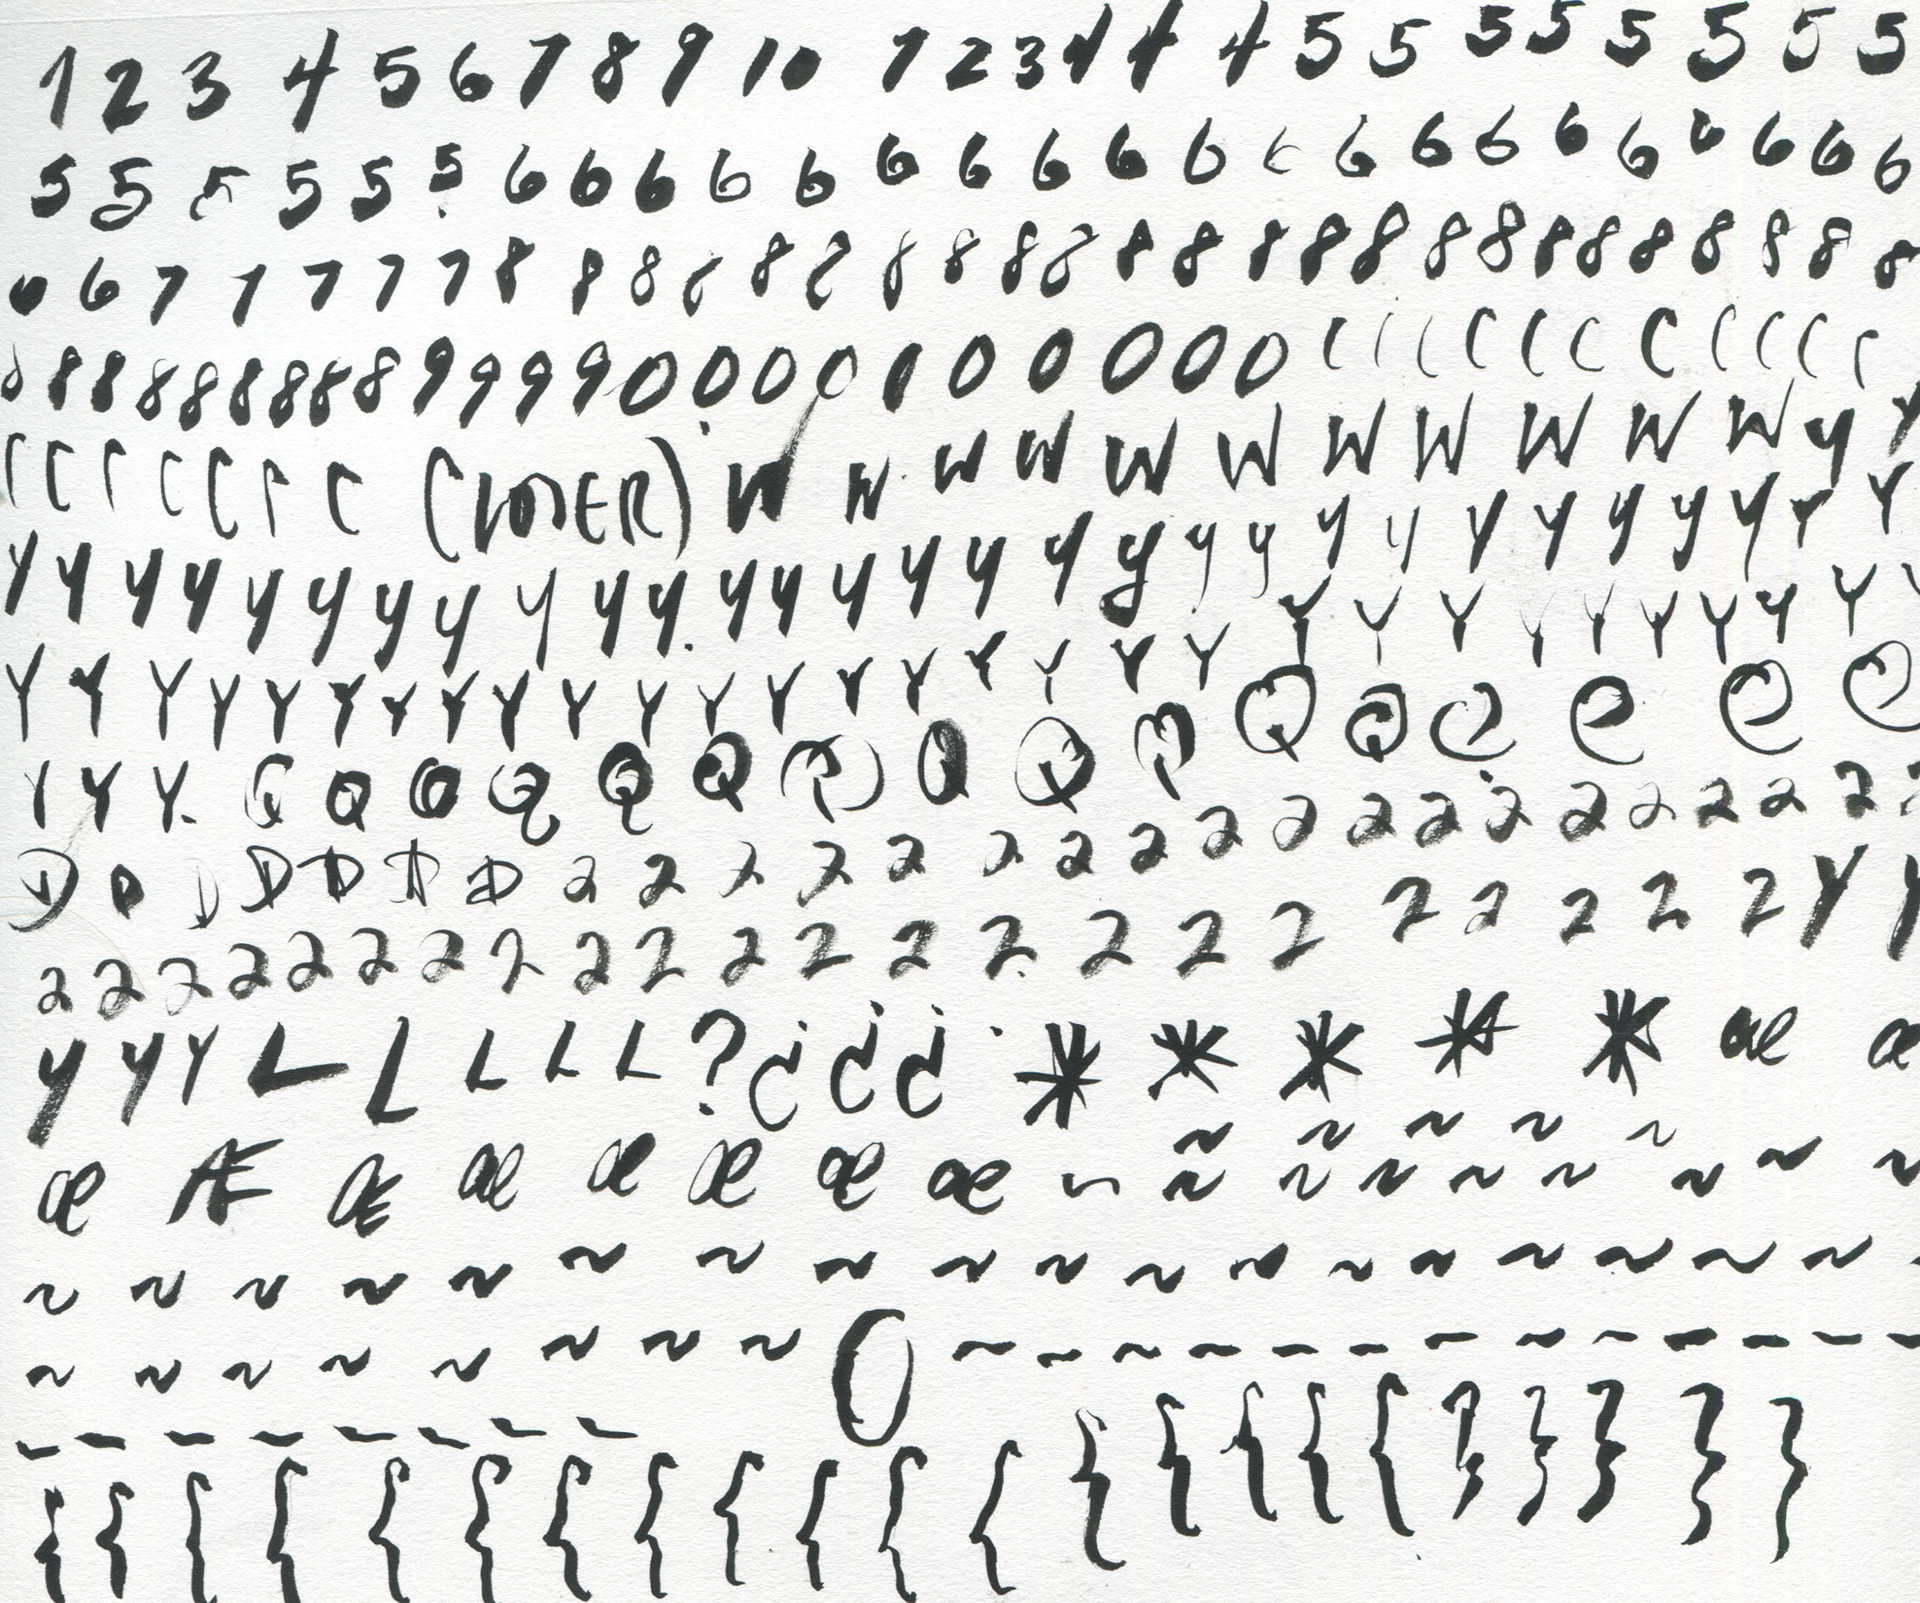 1 2 3 4 5 6 7 8 9 10 1 2 3 4 4 4 5 5 5 5 5 5 5 5
5 5 5 5 5 5 6 6 6 6 6 6 6 6 6 6 6 6 6 6 6 6 6 6 6
6 7 7 7 7 7 8 8 8 8 8 8 8 8 8 8 8 8 8 8 8 8 8 8 8 8 8 8
8 8 8 8 8 8 8 8 8 9 9 9 9 0 0 0 0 0 0 0 0 0 0 C C C C C C C C C C C
C C C C C C C ( ER) W W W W W W W W W W W y y
y y y y y y y y y y y y y y y y y y y y y y y y y y y y Y Y
Y Y Y Y Y Y Y Y Y Y Y Y Y Y Y Y Y Y Y Y Y Y Y Y Y Y Y Y
Y Y Y Q Q Q Q Q Q Q Q Q Q Q Q
D D D D D D D 2 2 2 2 2 2 2 2 2 2 2 2 2 2 2 2 2 2
2 2 2 2 2 2 2 2 2 2 2 2 2 2 2 2 2 2 2 2 2 2 Y Y
y y y L L L L L ? ¿ ¿ ¿ * * * * * æ æ
æ Æ Æ æ æ æ æ æ ~ ~ ~ ~ ~ ~ ~ ~ ~ ~ ~ ~ ~
~ ~ ~ ~ ~ ~ ~ ~ ~ ~ ~ ~ ~ ~ ~ ~ ~ ~
~ ~ ~ ~ ~ ~ ~ ~ 0 ~ ~ ~ - - - - ~ ~ - - - -
- - - - - - - -
{ { { { { { { { { { { { { { { { { } } } } }